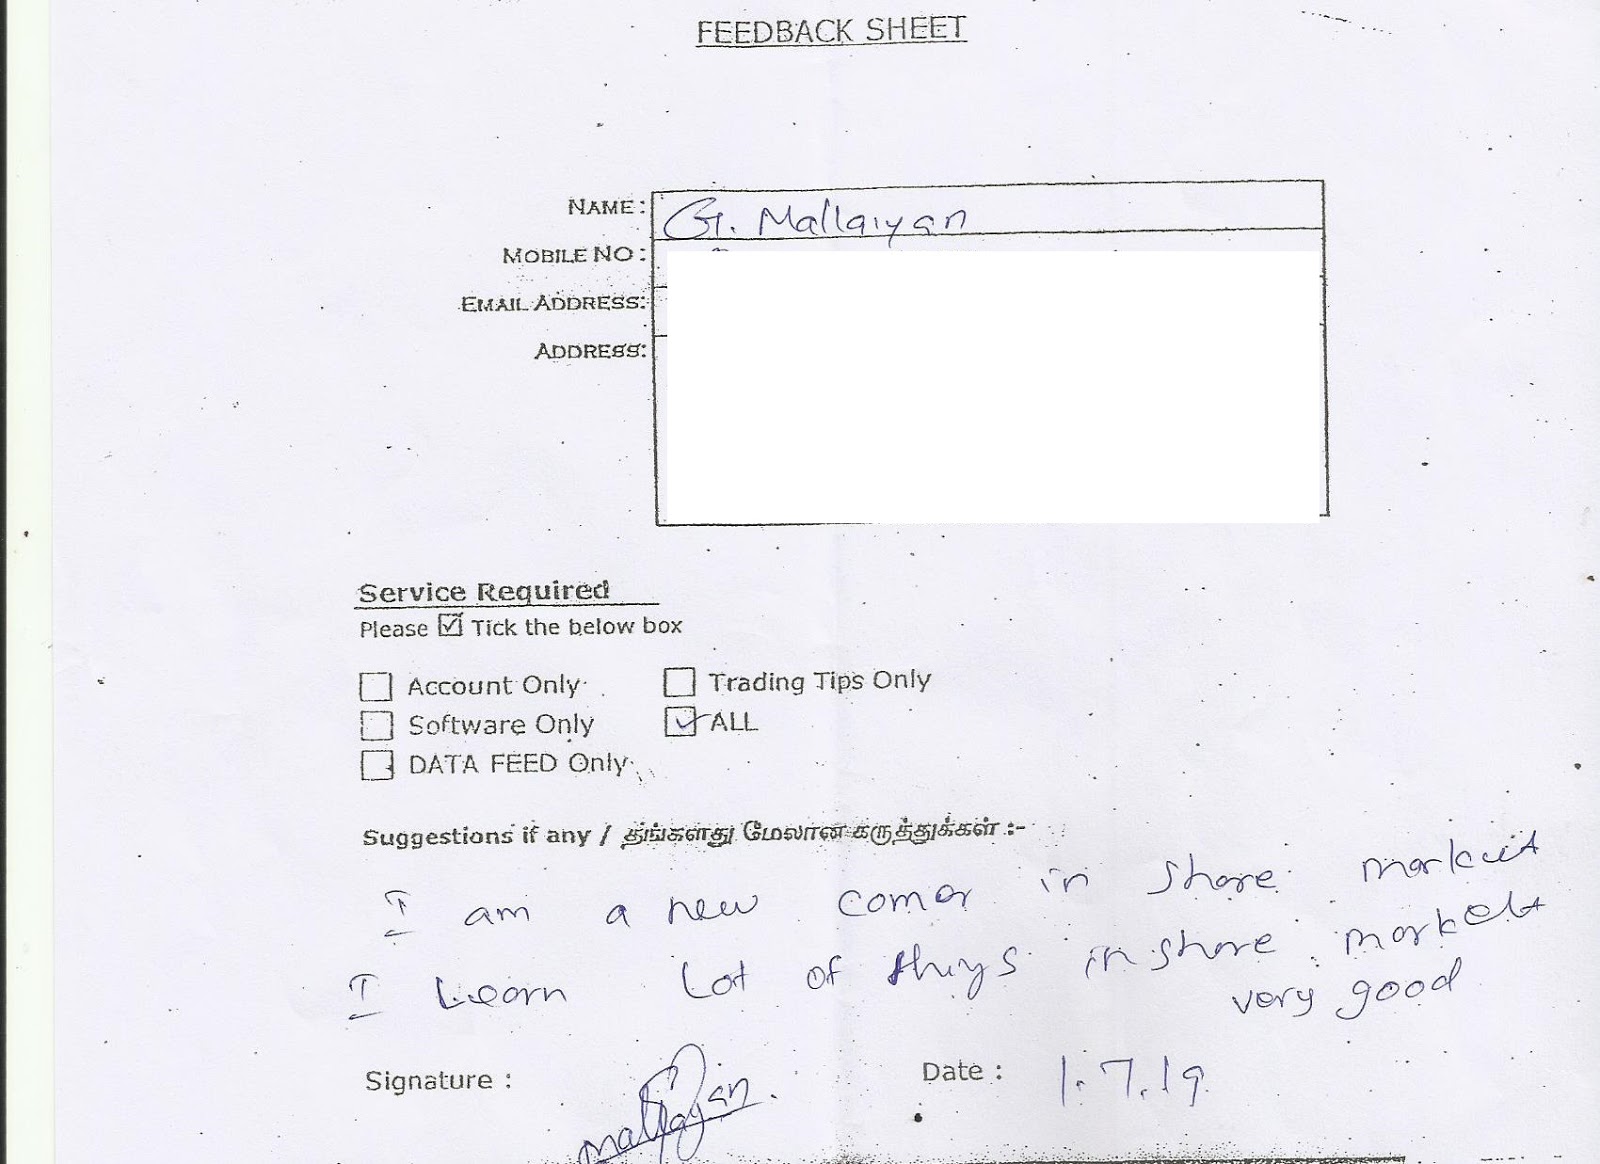 FEEDBACK SHEET
NAME: G. Mallaiyan
MOBILE NO:
EMAIL ADDRESS:
ADDRESS:
Service Required
Please ☑ Tick the below box
☐ Account Only ☐ Trading Tips Only
☐ Software Only ☑ ALL
☐ DATA FEED Only
Suggestions if any / தங்களது மேலான கருத்துக்கள் :-
I am a new comer in share market
I Learn Lot of things in share market
very good
Signature : Mallaiyan. Date : 1.7.19